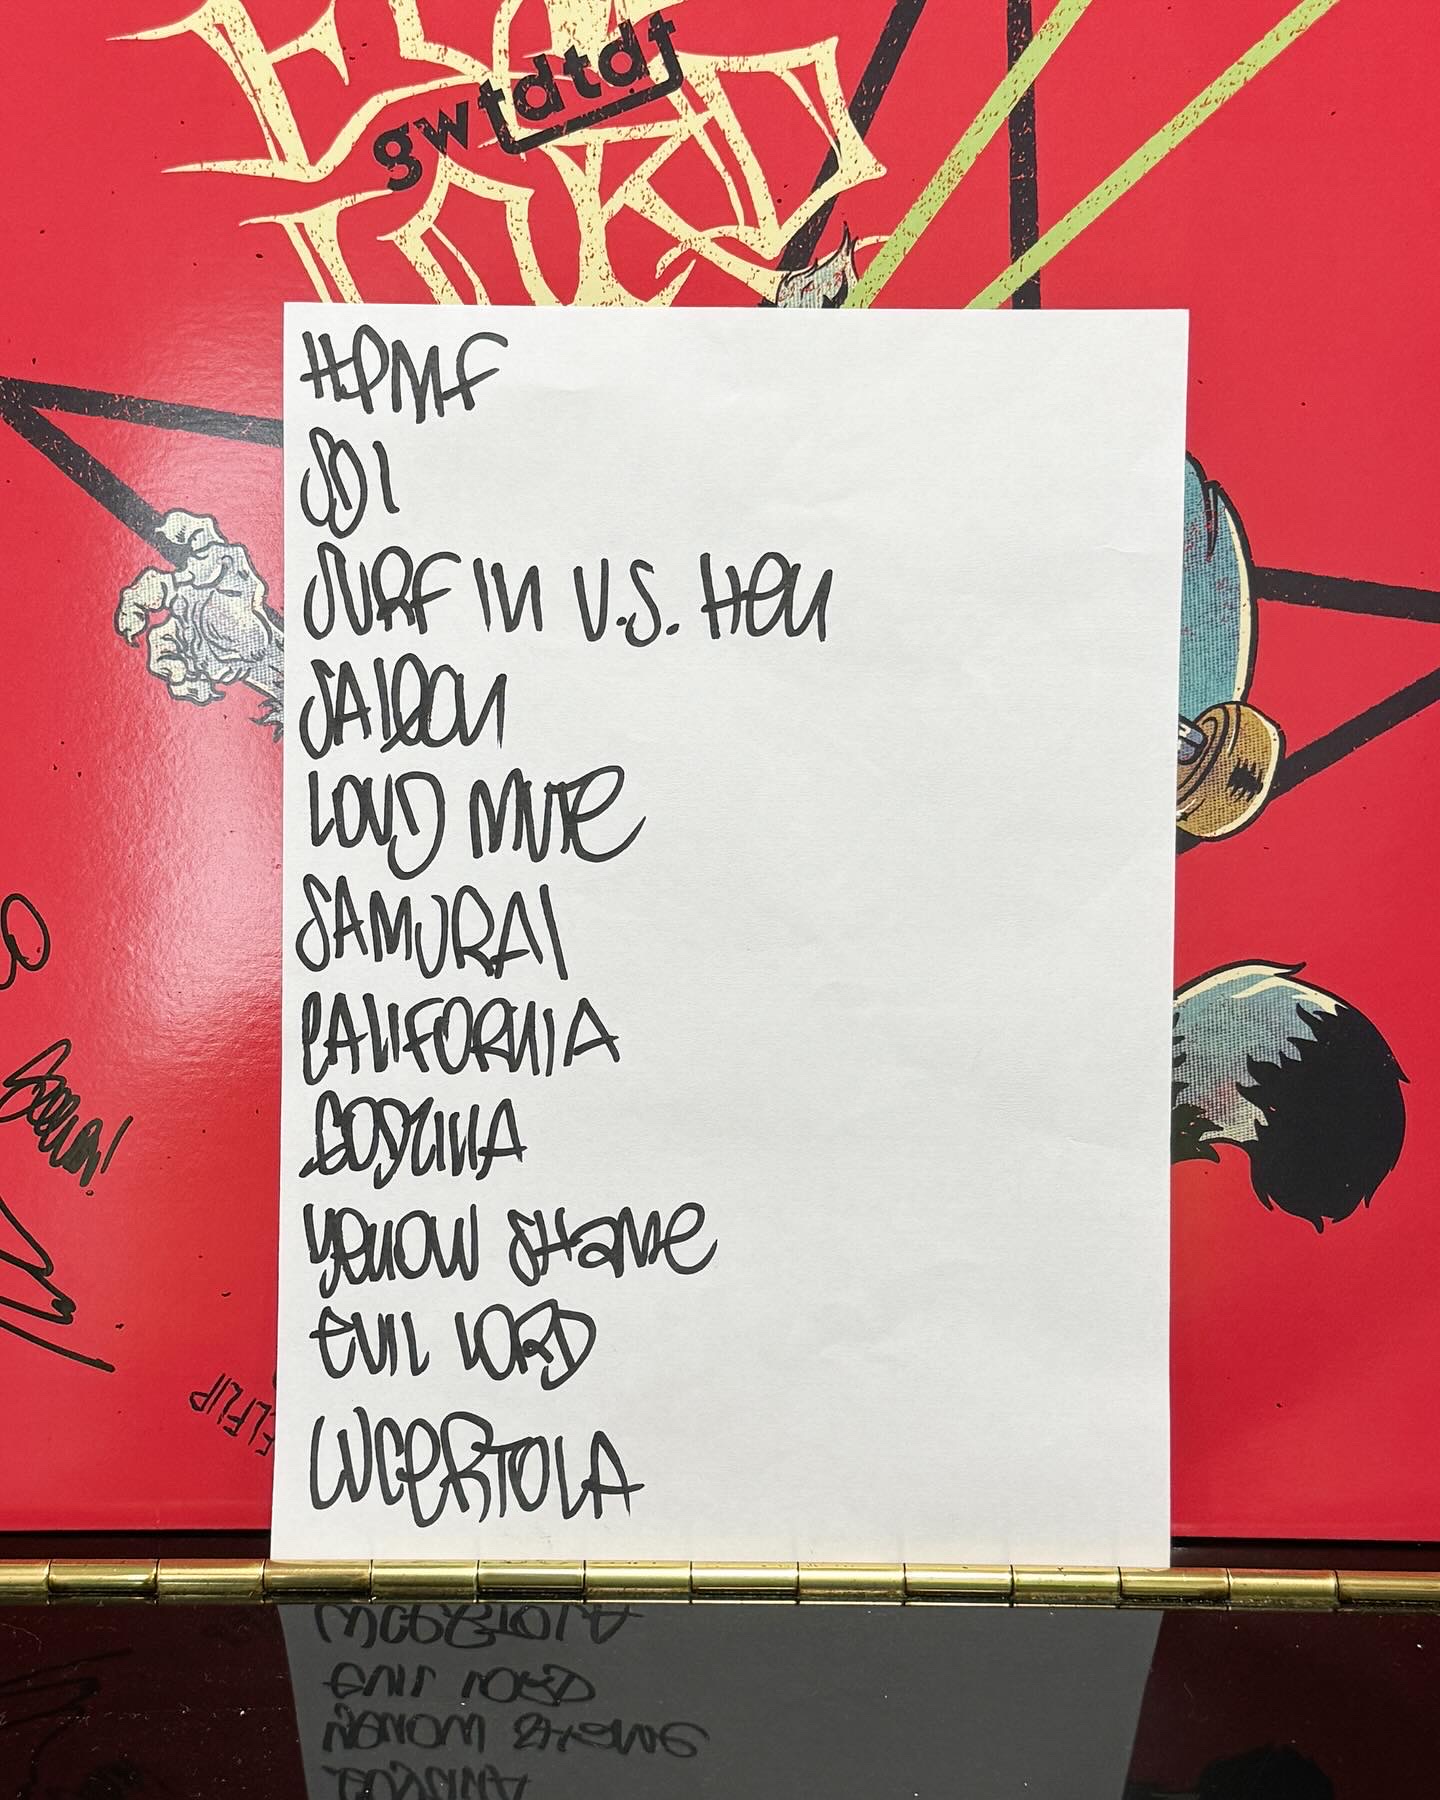 EVIL
gwtdtdf
LORD
HPMF
SDI
SURF IN U.S. HELL
SAIGON
LOUD MUTE
SAMURAI
CALIFORNIA
GODZILLA
YELLOW SHAME
EVIL LORD
LUCERTOLA